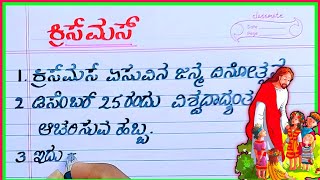 classmate
Date
Page
ಕ್ರಿಸ್‌ಮಸ್
1. ಕ್ರಿಸ್‌ಮಸ್ ಏಸುವಿನ ಜನ್ಮ ದಿನೋತ್ಸವ
2. ಡಿಸೆಂಬರ್ 25 ರಂದು ವಿಶ್ವದಾದ್ಯಂತ
ಆಚರಿಸುವ ಹಬ್ಬ.
3. ಇದು